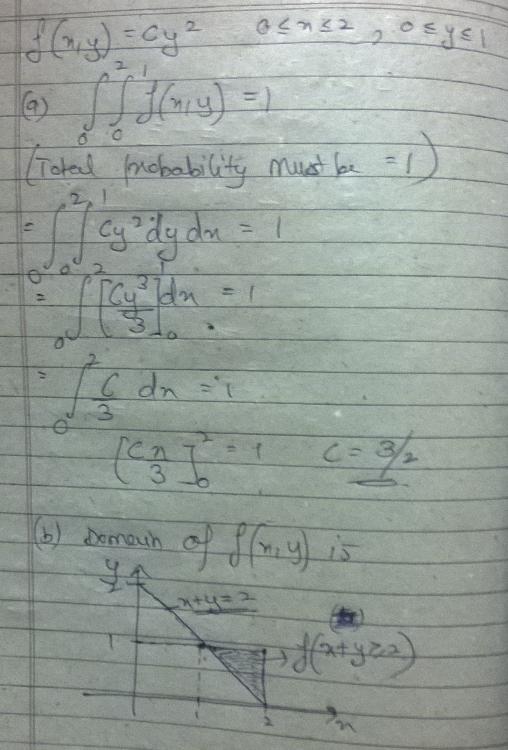 f(x,y) = Cy² 0 ≤ x ≤ 2, 0 ≤ y ≤ 1
(a) ∫₀² ∫₀¹ f(x,y) = 1
(Total probability must be = 1)
= ∫₀² ∫₀¹ Cy² dy dx = 1
= ∫₀² [Cy³/3]₀¹ dx = 1
= ∫₀² C/3 dx = 1
[Cx/3]₀² = 1 C = 3/2
(b) Domain of f(x,y) is
y
2
x+y=2
1 → f(x+y≥2)
2 x